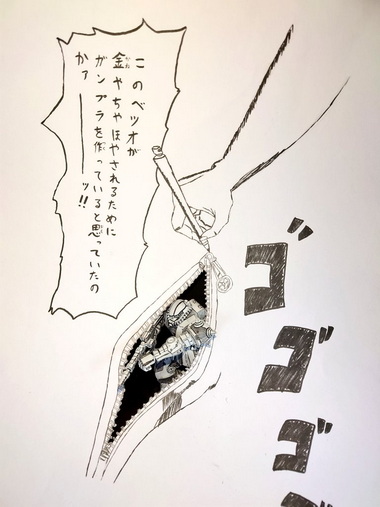 このベツオが
金やちやほやされるために
かね
ガンプラを作っていると思っていたの
つく
おも
かァーーーッ!!
ゴゴゴゴ